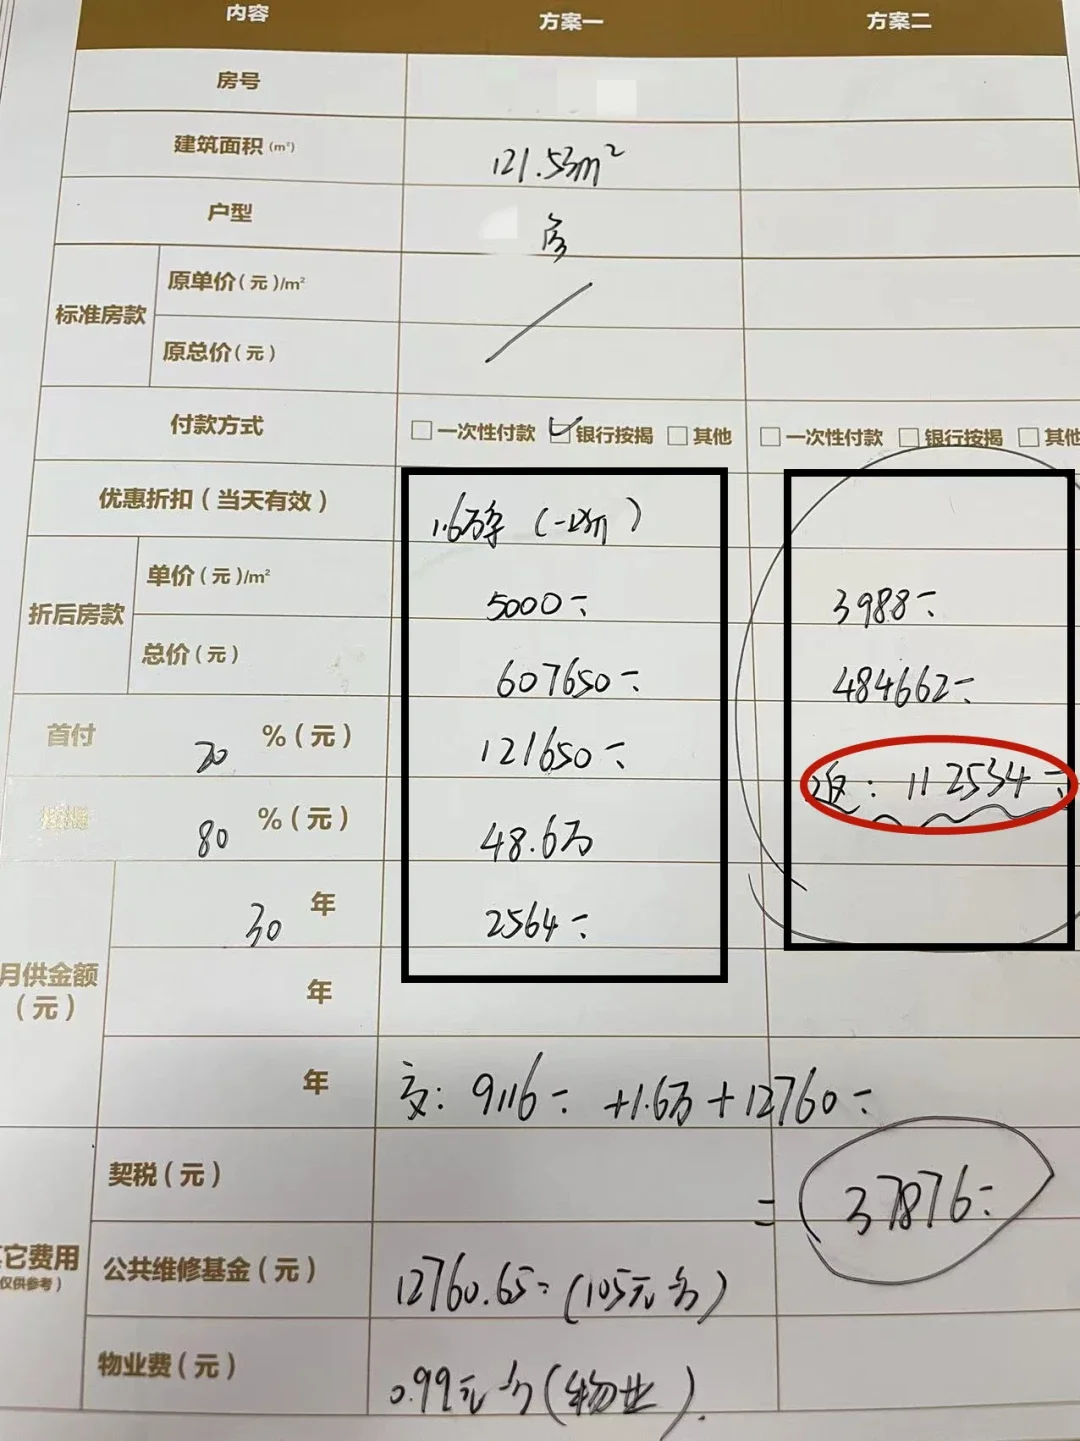 内容 方案一 方案二
房号
建筑面积(m²) 121.53m²
户型 房
标准房款 原单价(元)/m²
原总价(元)
付款方式 □一次性付款 ☑银行按揭 □其他 □一次性付款 □银行按揭 □其他
优惠折扣(当天有效) 1.6万
折后房款 单价(元)/m² 5000 3988
总价(元) 607650 484662
首付 20 %(元) 121650 返: 112534
按揭 80 %(元) 48.6万
月供金额(元) 30 年 2564
年
年 交: 9116 +1.6万+12760
契税(元) = 37876
它费用
仅供参考)
公共维修基金(元) 12760.65 (105元/方)
物业费(元) 0.99元/方(物业).